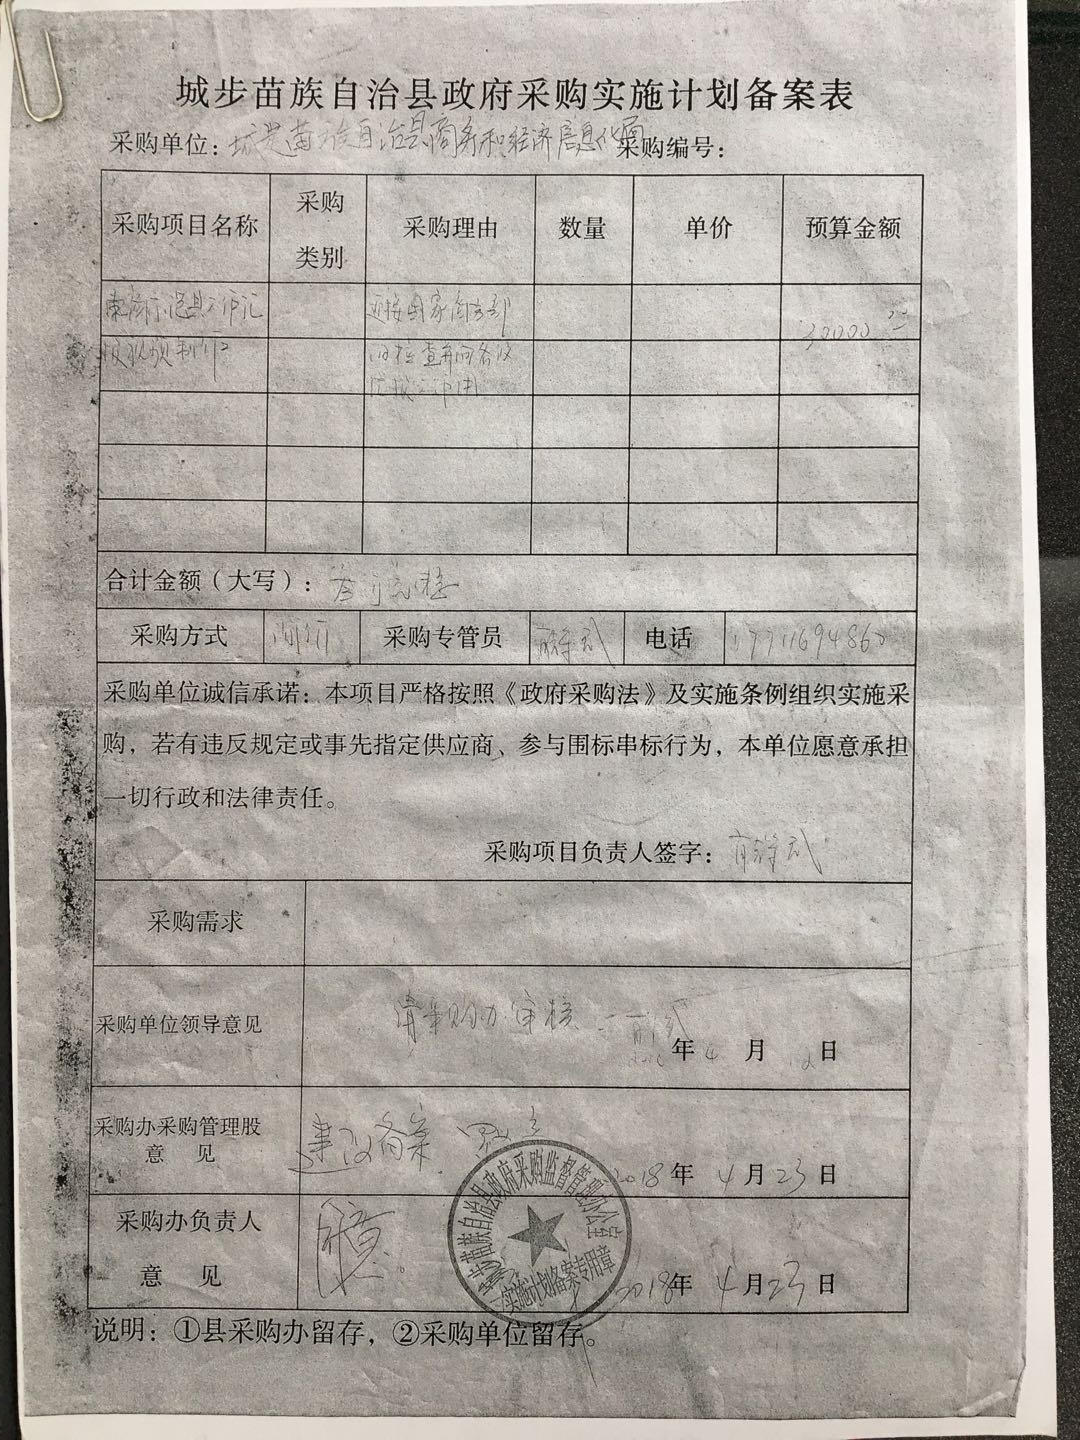 城步苗族自治县政府采购实施计划备案表
采购单位：城步苗族自治县商务和经济信息化局 采购编号：
采购项目名称 采购类别 采购理由 数量 单价 预算金额
迎接国家商务部
30000元
合计金额（大写）：叁万元整
采购方式 采购专管员 电话
采购单位诚信承诺：本项目严格按照《政府采购法》及实施条例组织实施采
购，若有违反规定或事先指定供应商、参与围标串标行为，本单位愿意承担
一切行政和法律责任。
采购项目负责人签字：
采购需求
采购单位领导意见 请采购办审核
年 4 月 日
采购办采购管理股
意 见
建议备案
2018年 4月23日
采购办负责人
意 见
同意。
2018年 4月23日
城步苗族自治县政府采购监督管理办公室
实施计划备案专用章
说明：①县采购办留存，②采购单位留存。